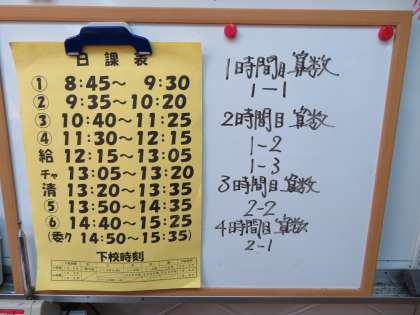 日課表
① 8:45～ 9:30
② 9:35～10:20
③ 10:40～11:25
④ 11:30～12:15
給 12:15～13:05
チャ 13:05～13:20
清 13:20～13:35
⑤ 13:50～14:35
⑥ 14:40～15:25
(委ク 14:50～15:35)
下校時刻
1時間目 算数
1-1
2時間目 算数
1-2
1-3
3時間目 算数
2-2
4時間目 算数
2-1